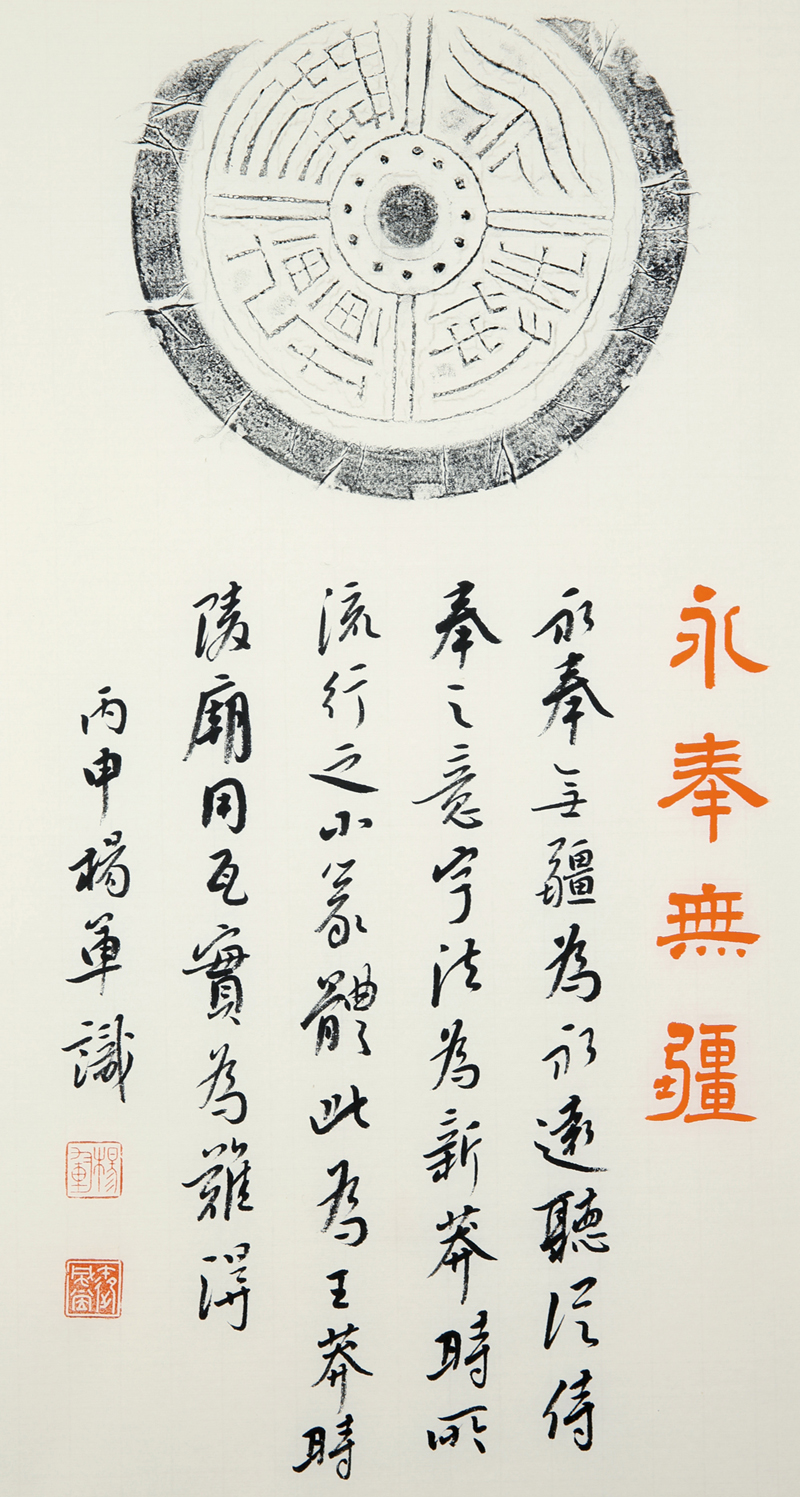 永奉無疆
永奉無疆
永奉無疆為永遠聽從侍
奉之意字法為新莽時所
流行之小篆體此為王莽時
陵廟用瓦實為難得
丙申楊軍識
楊軍